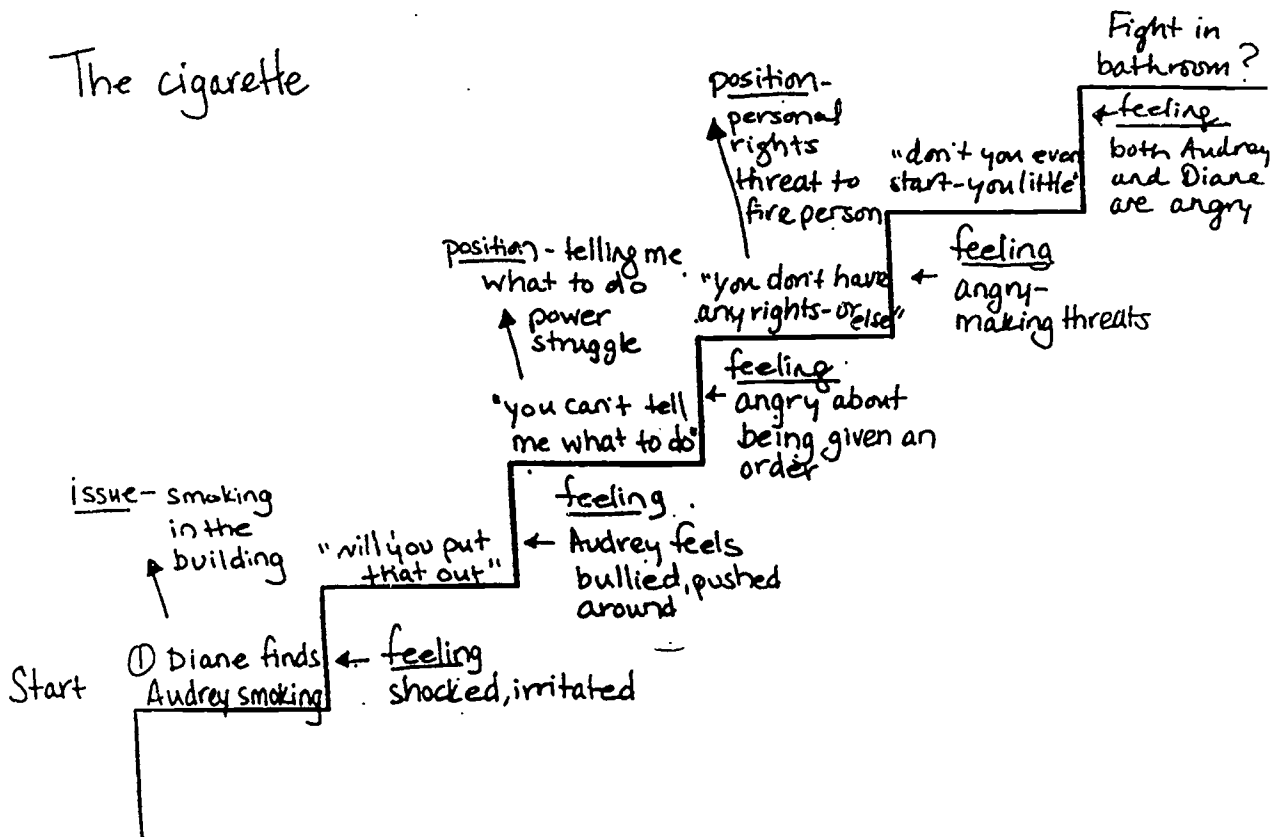 The cigarette
Start
① Diane finds
Audrey smoking
issue - smoking
in the
building
feeling
shocked, irritated
"will you put
that out"
feeling
Audrey feels
bullied, pushed
around
"you can't tell
me what to do"
position - telling me
what to do
power
struggle
feeling
angry about
being given an
order
"you don't have
any rights - or else"
position -
personal
rights
threat to
fire person
feeling
angry -
making threats
"don't you even
start - you little"
feeling
both Audrey
and Diane
are angry
Fight in
bathroom?